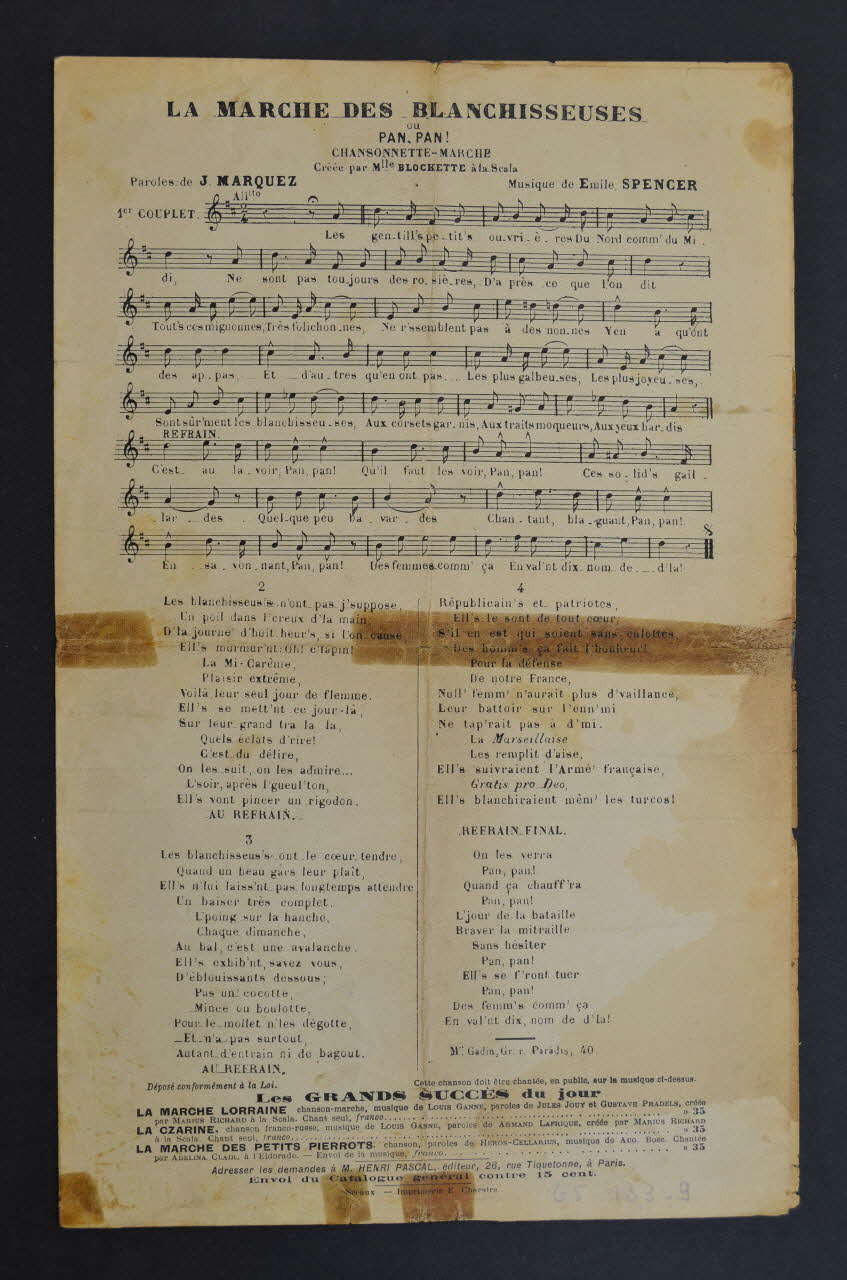 LA MARCHE DES BLANCHISSEUSES
ou
PAN, PAN!
CHANSONNETTE-MARCHE
Créée par Mlle BLOCKETTE à la Scala
Paroles de J. MARQUEZ
Musique de Emile SPENCER
Alltto
1er COUPLET.
Les gen_till's pe_tit's ou_vri_è_res Du Nord comm' du Mi_
di, Ne sont pas toujours des ro_siè_res, D'a près ce que l'on dit
Tout's ces mignonnes, Très folichon_nes, Ne r'ssemblent pas à des non_nes Y en a qu'ont
des ap_pas, Et d'au_tres qu'en ont pas... Les plus galbeu_ses, Les plus joyeu_ses,
Sont sûr'ment les blanchisseu_ses, Aux corsets gar_nis, Aux traits moqueurs, Aux yeux har_dis
REFRAIN.
C'est au la_voir, Pan, pan! Qu'il faut les voir, Pan, pan! Ces so_lid's gail_
lar_des Quel_que peu ba_var_des Chan_tant, bla_guant, Pan, pan!
En sa_von_nant, Pan, pan! Des femmes comm' ça En val'nt dix nom de d'la!
2
Les blanchisseus's n'ont pas j'suppose,
Un poil dans l'creux d'la main,
D'la journe' d'huit heur's, si l'on cause
Ell's murmur'nt: Oh! c'lapin!
La Mi-Carême,
Plaisir extrême,
Voilà leur seul jour de flemme.
Ell's se mett'nt ce jour-là,
Sur leur grand tra la la,
Quels éclats d'rire!
C'est du délire,
On les suit, on les admire...
L'soir, après l'gueul'ton,
Ell's vont pincer un rigodon.
AU REFRAIN.
3
Les blanchisseus's ont le cœur tendre,
Quand un beau gars leur plaît,
Ell's n'lui laiss'nt pas longtemps attendre
Un baiser très complet.
L'poing sur la hanche,
Chaque dimanche,
Au bal, c'est une avalanche.
Ell's exhib'nt, savez vous,
D'éblouissants dessous;
Pas un' cocotte,
Mince ou boulotte,
Pour le mollet n'les dégotte,
Et n'a pas surtout,
Autant d'entrain ni de bagout.
AU REFRAIN.
4
Républicain's et patriotes,
Ell's le sont de tout cœur;
S'il en est qui soient sans culottes,
Des homm's ça fait l'bonheur!
Pour la défense
De notre France,
Null' femm' n'aurait plus d'vaillance,
Leur battoir sur l'enn'mi
Ne tap'rait pas à d'mi.
La Marseillaise
Les remplit d'aise,
Ell's suivraient l'Armé' française,
Gratis pro Deo,
Ell's blanchiraient mêm' les turcos!
REFRAIN FINAL.
On les verra
Pan, pan!
Quand ça chauff'ra
Pan, pan!
L'jour de la bataille
Braver la mitraille
Sans hésiter
Pan, pan!
Ell's se f'ront tuer
Pan, pan!
Des femm's comm' ça
En val'nt dix, nom de d'la!
Gadin, Gr. r. Paradis, 40.
Déposé conformément à la Loi.
Cette chanson doit être chantée, en public, sur la musique ci-dessus.
Les GRANDS SUCCÈS du jour
LA MARCHE LORRAINE chanson-marche, musique de LOUIS GANNE, paroles de JULES JOUY et GUSTAVE PRADELS, créée
par MARIUS RICHARD à la Scala. Chant seul, franco.... » 35
LA CZARINE, chanson franco-russe, musique de LOUIS GANNE, paroles de ARMAND LAFRIQUE, créée par MARIUS RICHARD
à la Scala. Chant seul, franco.... » 35
LA MARCHE DES PETITS PIERROTS, chanson, paroles de HÉROS-CELLARIUS, musique de AUG. BOSC. Chantée
par ADELINA CLAIR, à l'Eldorado. — Envoi de la musique, franco.... » 35
Adresser les demandes à M. HENRI PASCAL, éditeur, 26, rue Tiquetonne, à Paris.
Envoi du Catalogue général contre 15 cent.
Sceaux — Imprimerie E. Charaire